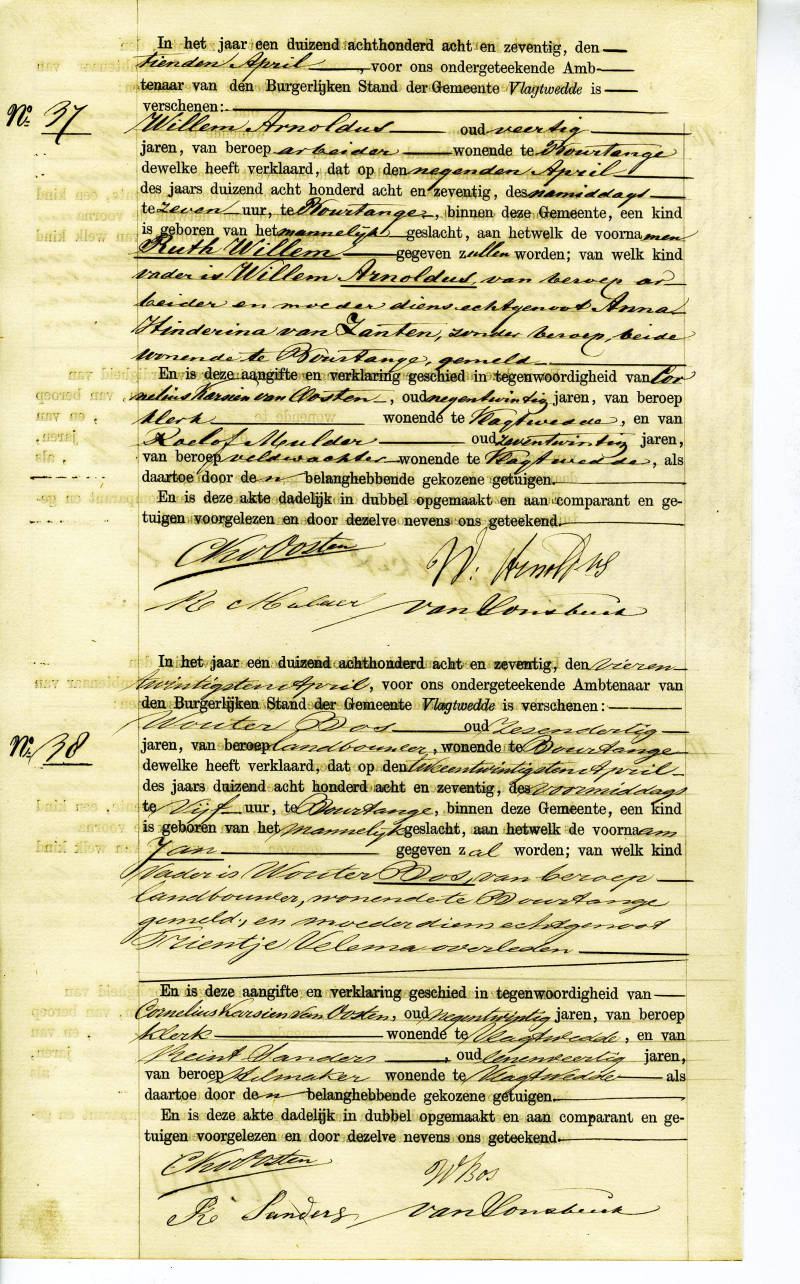 In het jaar een duizend achthonderd acht en zeventig, den
tienden April, voor ons ondergeteekende Amb-
tenaar van den Burgerlijken Stand der Gemeente Vlagtwedde is
verschenen:
No. 37
Willem Arnoldus oud veertig
jaren, van beroep arbeider wonende te Bourtange
dewelke heeft verklaard, dat op den negenden April
des jaars duizend acht honderd acht en zeventig, des namiddags
te zeven uur, te Bourtange, binnen deze Gemeente, een kind
is geboren van het mannelijk geslacht, aan hetwelk de voornamen
Ruth Willem gegeven zullen worden; van welk kind
vader is Willem Arnoldus, van beroep ar-
beider en moeder diens echtgenoot Anna
Hinderina van Zanten, zonder beroep, beide
wonende te Bourtange, gemeld.
En is deze aangifte en verklaring geschied in tegenwoordigheid van Cor
nelius Karsien van Oosten, oud negentwintig jaren, van beroep
klerk wonende te Vlagtwedde, en van
Roelof Mulder oud zeventwintig jaren,
van beroep veldwachter wonende te Vlagtwedde, als
daartoe door den belanghebbende gekozene getuigen.
En is deze akte dadelijk in dubbel opgemaakt en aan comparant en ge-
tuigen voorgelezen en door dezelve nevens ons geteekend.
CKvOosten W. Arnoldus
R Mulder
In het jaar een duizend achthonderd acht en zeventig, den vieren-
twintigsten April, voor ons ondergeteekende Ambtenaar van
den Burgerlijken Stand der Gemeente Vlagtwedde is verschenen:
No. 38
Wouter Bos oud zesendertig
jaren, van beroep landbouwer, wonende te Bourtange
dewelke heeft verklaard, dat op den tweeentwintigsten April
des jaars duizend acht honderd acht en zeventig, des voormiddags
te vijf uur, te Bourtange, binnen deze Gemeente, een kind
is geboren van het mannelijk geslacht, aan hetwelk de voornaam
Jan gegeven zal worden; van welk kind
vader is Wouter Bos, van beroep
landbouwer, wonende te Bourtange
gemeld, en moeder diens echtgenoot
Trientje Velema overleden
En is deze aangifte en verklaring geschied in tegenwoordigheid van
Cornelius Karsien van Oosten, oud negentwintig jaren, van beroep
klerk wonende te Vlagtwedde, en van
Reint Sanders, oud eenenveertig jaren,
van beroep wonende te Vlagtwedde als
daartoe door den belanghebbende gekozene getuigen.
En is deze akte dadelijk in dubbel opgemaakt en aan comparant en ge-
tuigen voorgelezen en door dezelve nevens ons geteekend.
CKvOosten WBos
R Sanders